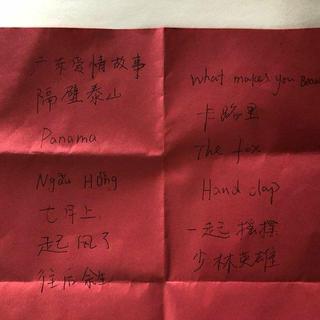 广东爱情故事
隔壁泰山
Panama
Ngẫu Hứng
七月上
起风了
往后余生
What makes you
卡路里
The fox
Hand clap
一起摇摆
少林英雄